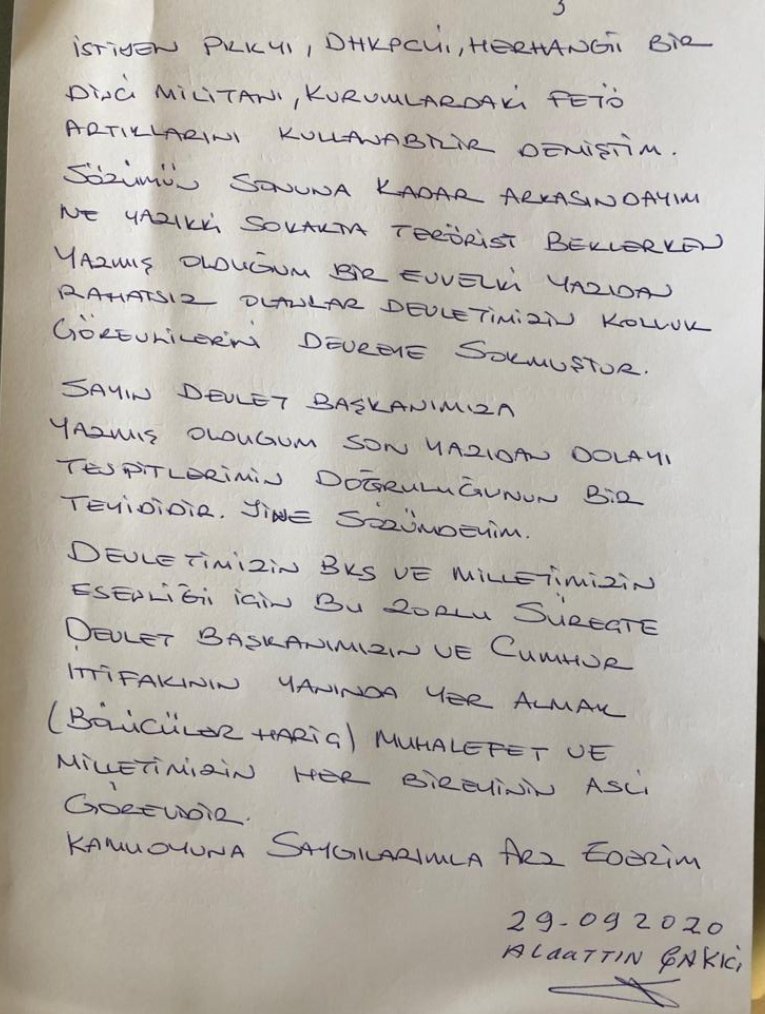 3
İSTİYEN PKKYI, DHKPCYİ, HERHANGİ BİR
DİNCİ MİLİTANI, KURUMLARDAKİ FETÖ
ARTIKLARINI KULLANABİLİR DEMİŞTİM.
SÖZÜMÜN SONUNA KADAR ARKASINDAYIM
NE YAZIKKİ SOKAKTA TERÖRİST BEKLERKEN
YAZMIŞ OLDUĞUM BİR EVVELKİ YAZIDAN
RAHATSIZ OLANLAR DEVLETİMİZİN KOLLUK
GÖREVLİLERİNİ DEVREYE SOKMUŞTUR.
SAYIN DEVLET BAŞKANIMIZA
YAZMIŞ OLDUGUM SON YAZIDAN DOLAYI
TESPİTLERİMİN DOĞRULUĞUNUN BİR
TEYİDİDİR. YİNE SÖZÜMDEYİM.
DEVLETİMİZİN BKS VE MİLLETİMİZİN
ESENLİĞİ İÇİN BU ZORLU SÜREÇTE
DEVLET BAŞKANIMIZIN VE CUMHUR
İTTİFAKININ YANINDA YER ALMAK
(BÖLÜCÜLER HARİÇ) MUHALEFET VE
MİLLETİMİZİN HER BİREYİNİN ASLİ
GÖREVİDİR.
KAMUOYUNA SAYGILARIMLA ARZ EDERİM
29-09 2020
ALAATTİN ÇAKICI